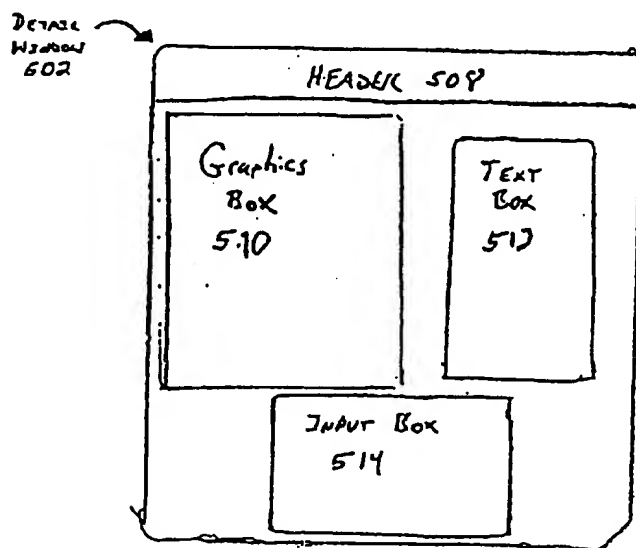 DETAIL
WINDOW
602
HEADER 508
Graphics
Box
510
TEXT
BOX
512
INPUT BOX
514